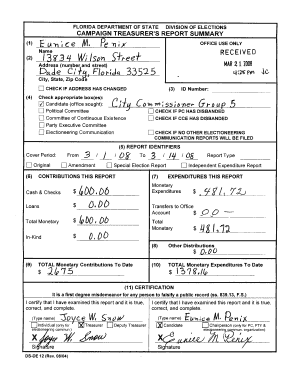 FLORIDA DEPARTMENT OF STATE DIVISION OF ELECTIONS
CAMPAIGN TREASURER'S REPORT SUMMARY
(1) Eunice M. Penix
Name
OFFICE USE ONLY
RECEIVED
MAR 21 2008
4:25 PM
(2) 13834 Wilson Street
Address (number and street)
Dade City, Florida 33525
City, State, Zip Code
CHECK IF ADDRESS HAS CHANGED
(3) ID Number:
(4) Check appropriate box(es):
Candidate (office sought) City Commissioner Group 5
Political Committee
CHECK IF PC HAS DISBANDED
Committee of Continuous Existence
CHECK IF CCE HAS DISBANDED
Party Executive Committee
Electioneering Communication
CHECK IF NO OTHER ELECTIONEERING COMMUNICATION REPORTS WILL BE FILED
(5) REPORT IDENTIFIERS
Cover Period: From 3 / 1 / 08 To 3 / 14 / 08 Report Type
Original Amendment Special Election Report Independent Expenditure Report
(6) CONTRIBUTIONS THIS REPORT
Cash & Checks $ 600.00
Loans $ 0.00
Total Monetary $ 600.00
In-Kind $ 0.00
(7) EXPENDITURES THIS REPORT
Monetary
Expenditures $ 481.72
Transfers to Office
Account $
Total
Monetary $ 481.72
(8) Other Distributions
$ 0.00
(9) TOTAL Monetary Contributions To Date
$ 2675
(10) TOTAL Monetary Expenditures To Date
$ 1378.16
(11) CERTIFICATION
It is a first degree misdemeanor for any person to falsify a public record (ss. 839.13, F.S.)
I certify that I have examined this report and it is true, correct, and complete.
(Type name) Joyce W. Snow
Individual (only for electioneering commun.) Treasurer Deputy Treasurer
X Joyce W. Snow
Signature
I certify that I have examined this report and it is true, correct, and complete.
(Type name) Eunice M. Penix
Candidate Chairperson (only for PC, PTY & electioneering commun. organization)
X Eunice M. Penix
Signature
DS-DE 12 (Rev. 08/04)